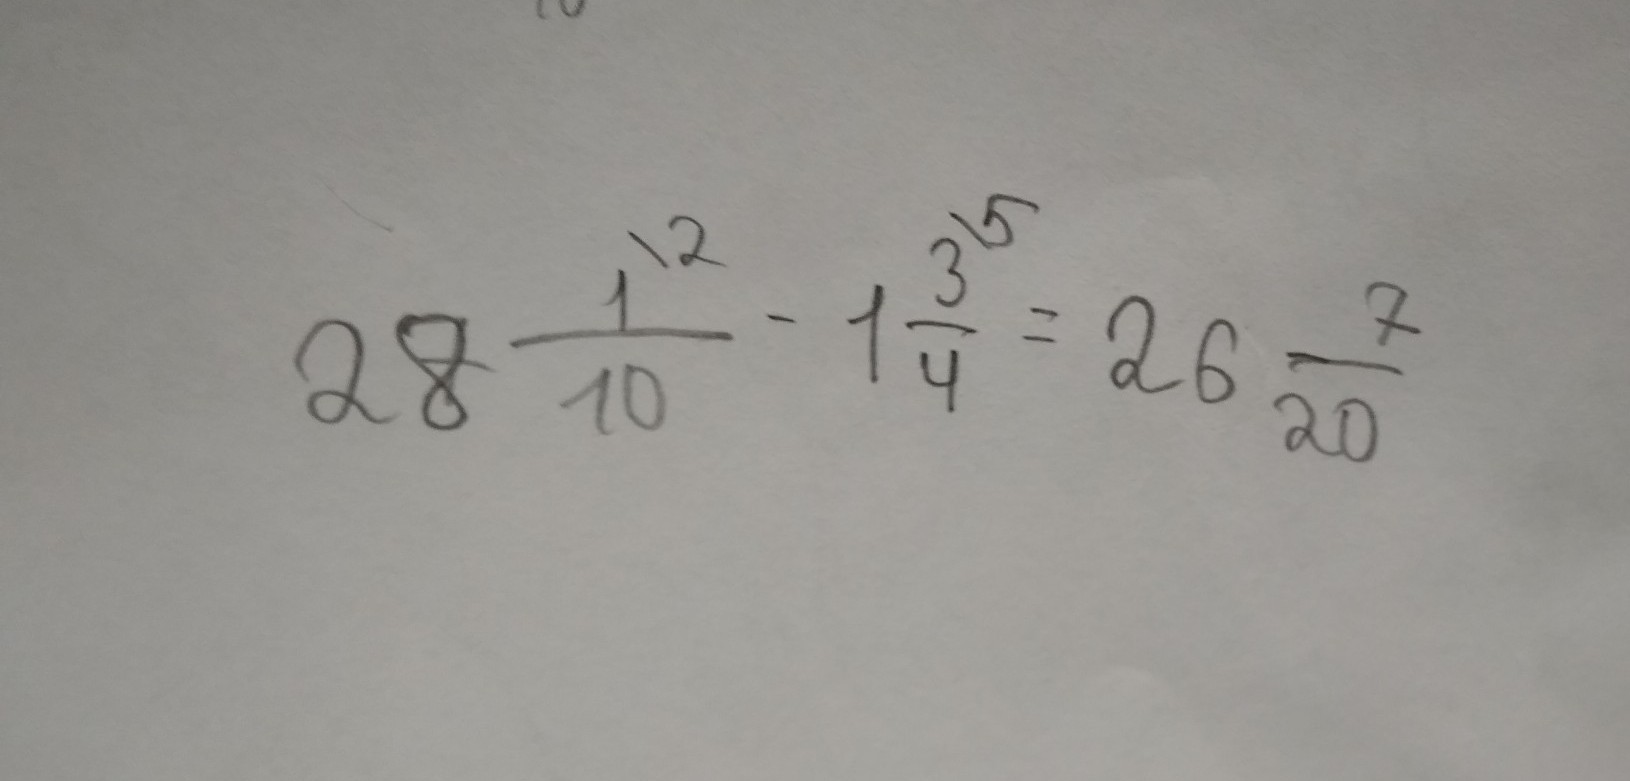 28 1\2/10 - 1 3\5/4 = 26 7/20